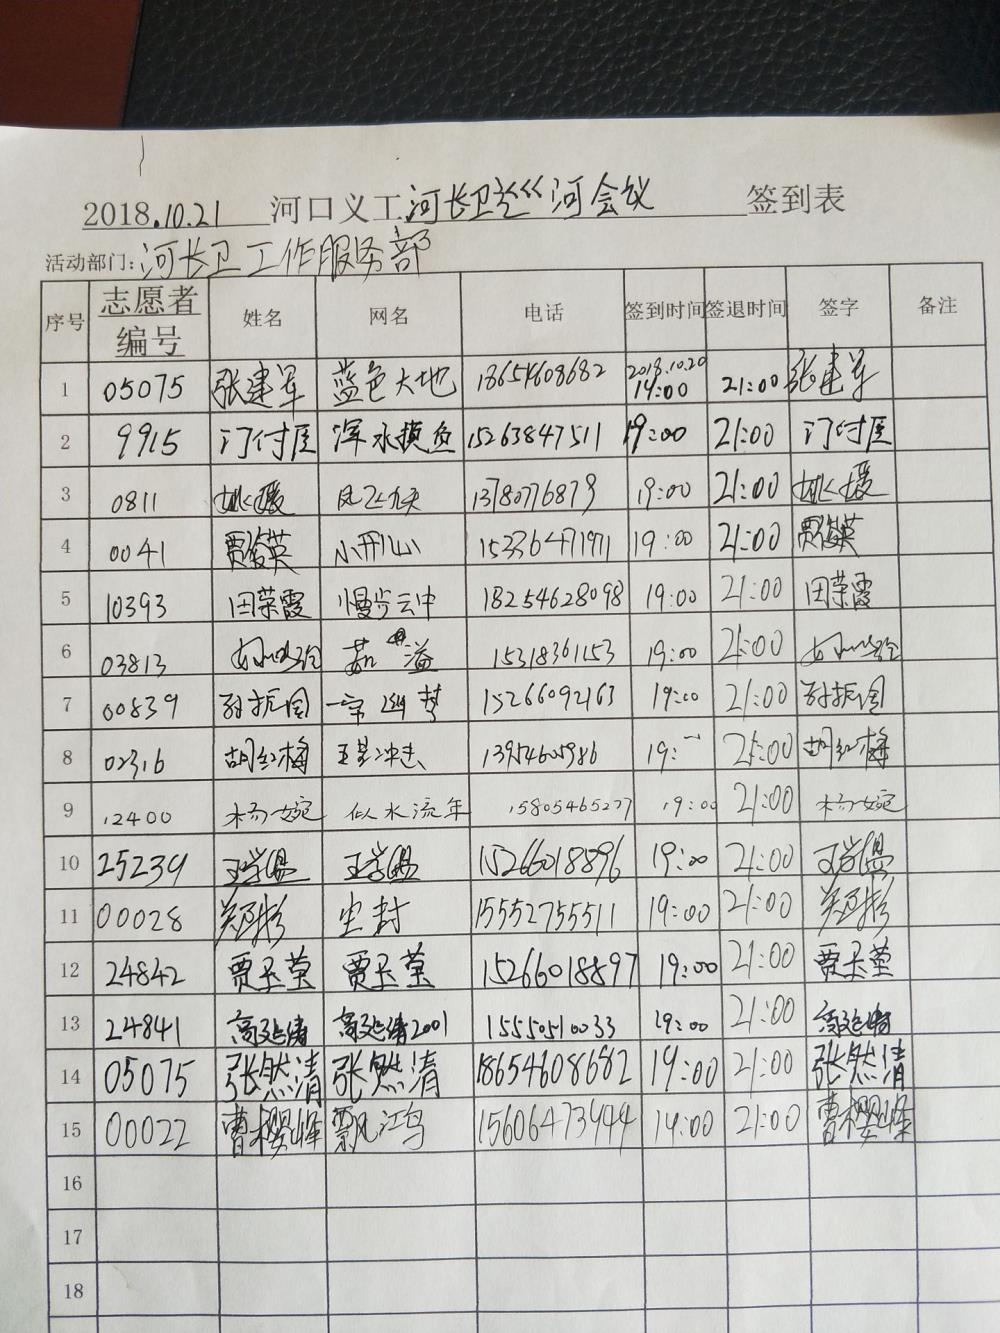 2018.10.21 河口义工河长卫巡河会议 签到表
活动部门:河长卫工作服务部
序号 志愿者编号 姓名 网名 电话 签到时间 签退时间 签字 备注
1 05075 张建军 蓝色大地 18654608682 2018.10.20 19:00 21:00 张建军
2 9915 门付臣 浑水摸鱼 15263847511 19:00 21:00 门付臣
3 0811 姚媛 凤飞九天 13780776879 19:00 21:00 姚媛
4 0041 贾俊英 小开心 19:00 21:00 贾俊英
5 10393 田荣霞 慢步云中 18254628098 19:00 21:00 田荣霞
6 03813 溢 15318361153 19:00 21:00
7 00839 孙振国 一帘幽梦 15266092163 19:00 21:00 孙振国
8 02316 胡红梅 13954605986 19: 21:00 胡红梅
9 12400 杨婉 似水流年 15805465277 19:00 21:00 杨婉
10 25239 15266018896 19:00 21:00
11 00028 郑彬 尘封 15552755511 19:00 21:00 郑彬
12 24842 贾玉莹 贾玉莹 15266018897 19:00 21:00 贾玉莹
13 24841 高延涛 高延涛2001 15550510033 19:00 21:00 高延涛
14 05075 张然清 张然清 18654608682 19:00 21:00 张然清
15 00022 曹樱峰 飘江鸟 15606473444 19:00 21:00 曹樱峰
16
17
18